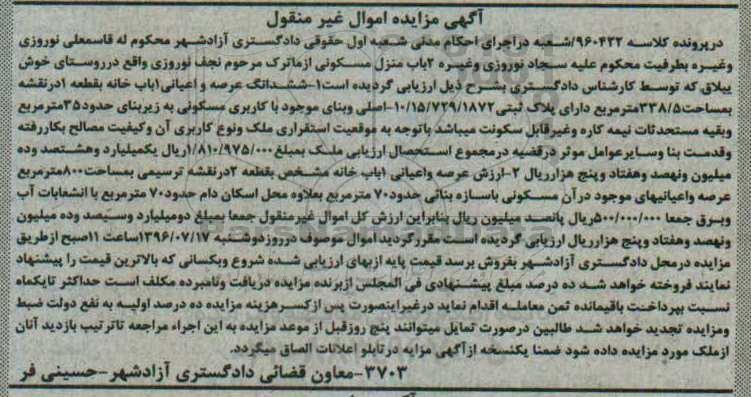 آگهی مزایده اموال غیر منقول
درپرونده کلاسه ۹۶۰۴۳۲/شعبه دراجرای احکام مدنی شعبه اول حقوقی دادگستری آزادشهر محکوم له قاسمعلی نوروزی
وغیره بطرفیت محکوم علیه سجاد نوروزی وغیره ۲باب منزل مسکونی ازماترک مرحوم نجف نوروزی واقع درروستای خوش
ییلاق که توسط کارشناس دادگستری بشرح ذیل ارزیابی گردیده است۱-ششدانگ عرصه و اعیانی۱باب خانه بقطعه ۱درنقشه
بمساحت۳۳۸/۵مترمربع دارای پلاک ثبتی۱۰/۱۵/۷۲۹/۱۸۷۲-اصلی وبنای موجود با کاربری مسکونی به زیربنای حدود۳۵مترمربع
وبقیه مستحدثات نیمه کاره وغیرقابل سکونت میباشد باتوجه به موقعیت استقراری ملک ونوع کاربری آن وکیفیت مصالح بکاررفته
وقدمت بنا وسایرعوامل موثر درقضیه درمجموع استحصال ارزیابی ملک بمبلغ۱/۸۱۰/۹۷۵/۰۰۰ریال یکمیلیارد وهشتصد وده
میلیون ونهصد وهفتاد وپنج هزارریال ۲-ارزش عرصه واعیانی ۱باب خانه مشخص بقطعه ۲درنقشه ترسیمی بمساحت۸۰۰مترمربع
عرصه واعیانیهای موجود درآن مسکونی باسازه بنائی حدود۷۰ مترمربع بعلاوه محل اسکان دام حدود۷۰ مترمربع با انشعابات آب
وبرق جمعا ۵۰۰/۰۰۰/۰۰۰ریال پانصد میلیون ریال بنابراین ارزش کل اموال غیرمنقول جمعا بمبلغ دومیلیارد وسیصد وده میلیون
ونهصد وهفتاد وپنج هزارریال ارزیابی گردیده است مقررگردید اموال موصوف درروزدوشنبه ۱۳۹۶/۰۷/۱۷ساعت ۱۱صبح ازطریق
مزایده درمحل دادگستری آزادشهر بفروش برسد قیمت پایه ازبهای ارزیابی شده شروع وبکسانی که بالاترین قیمت را پیشنهاد
نمایند فروخته خواهد شد ده درصد مبلغ پیشنهادی فی المجلس ازبرنده مزایده دریافت ونامبرده مکلف است حداکثر تایکماه
نسبت بپرداخت باقیمانده ثمن معامله اقدام نماید درغیراینصورت پس ازکسرهزینه مزایده ده درصد اولیه به نفع دولت ضبط
ومزایده تجدید خواهد شد طالبین درصورت تمایل میتوانند پنج روزقبل از موعد مزایده به این اجراء مراجعه تاترتیب بازدید آنان
ازملک مورد مزایده داده شود ضمنا یکنسخه ازآگهی مزایه درتابلو اعلانات الصاق میگردد.
۳۷۰۳-معاون قضائی دادگستری آزادشهر-حسینی فر